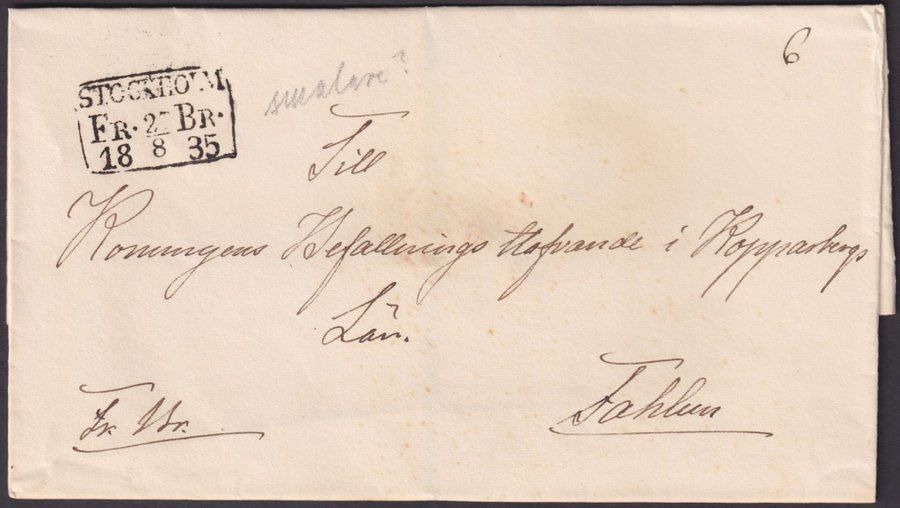 6
STOCKHOLM
FR. 27 BR.
18 8 35
smalare?
Till
Konungens Befallnings Hafvande i Kopparbergs
Län.
Fr. Br.
Fahlun